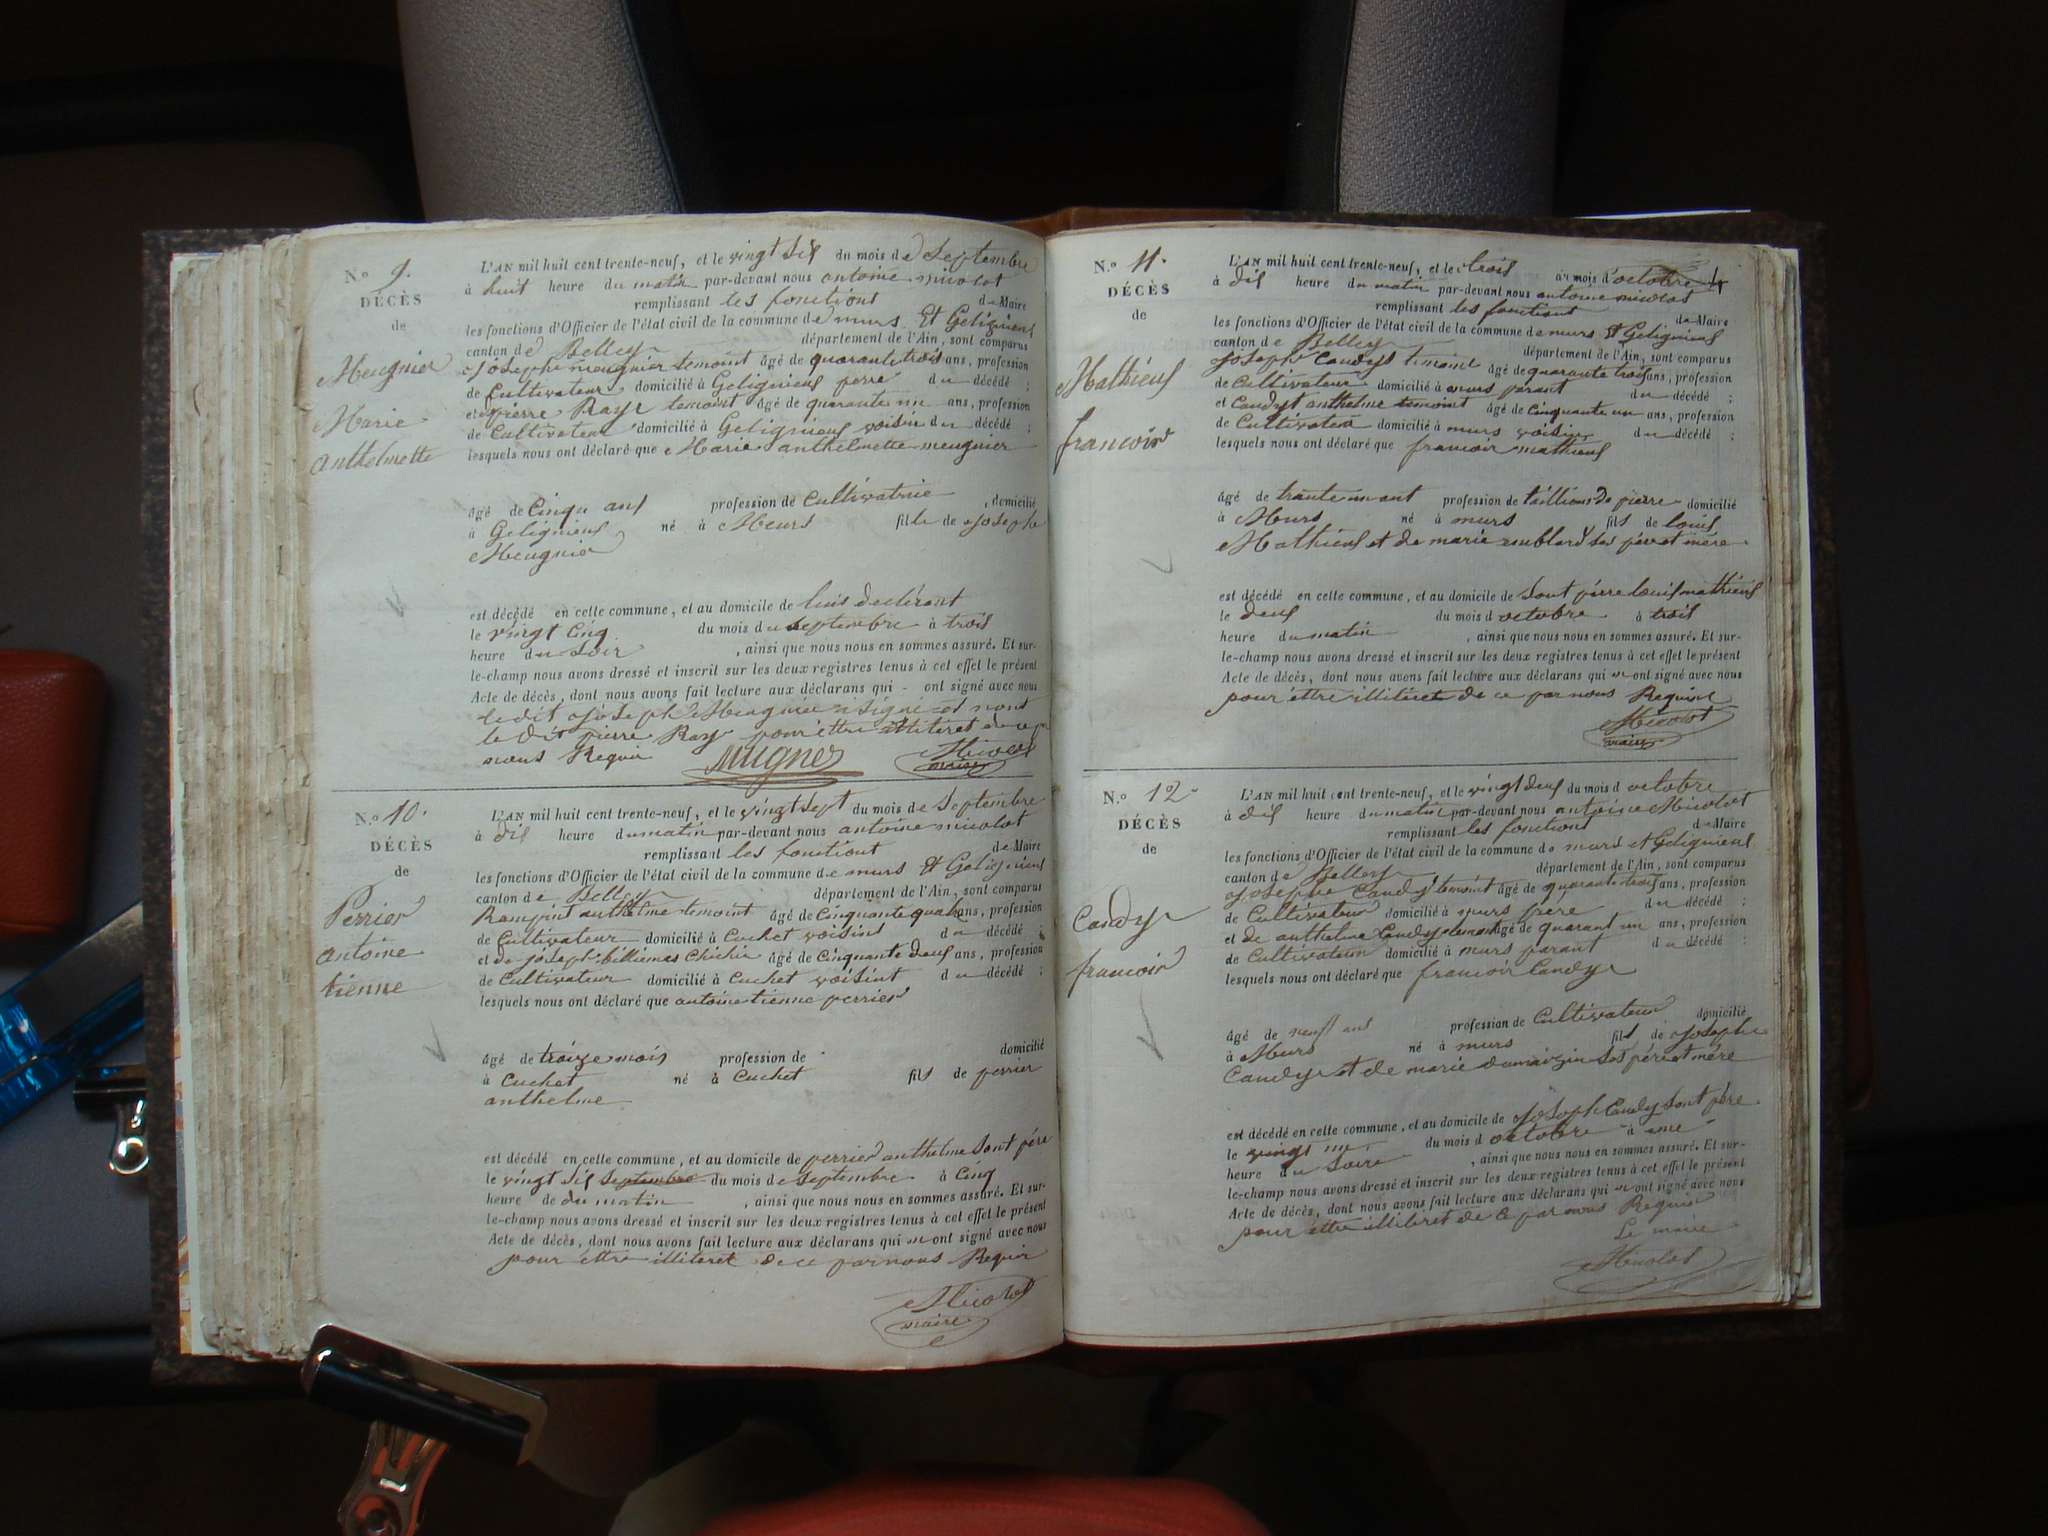 N.o 9.
DÉCÈS
de
Meugnier
Marie
anthelmette
L'AN mil huit cent trente-neuf, et le vingt six du mois de Septembre
à huit heure du matin par-devant nous antoine nicolot
remplissant les fonctions de Maire
les fonctions d'Officier de l'état civil de la commune de murs Et Gelignieux
canton de Belley département de l'Ain, sont comparus
Joseph meugnier temoint âgé de quarante trois ans, profession
de Cultivateur domicilié à Gelignieux perre du décédé ;
et pierre Rayr temoint âgé de quarante un ans, profession
de Cultivateur domicilié à Gelignieux voisin du décédé ;
lesquels nous ont déclaré que Marie anthelmette meugnier
âgé de Cinque ans profession de Cultivatrice , domicilié
à Geligniens né à Meurs fille de Joseph
Meugnier
est décédé en cette commune, et au domicile de luis declérant
le vingt Cinq du mois du septembre à trois
heure du soir , ainsi que nous nous en sommes assuré. Et sur-
le-champ nous avons dressé et inscrit sur les deux registres tenus à cet effet le présent
Acte de décès, dont nous avons fait lecture aux déclarans qui - ont signé avec nous
le dit Joseph Meugnier a signé et nont
le dit pierre Ray pour éttre illiteret de ce p
nous Requir Mugner Nicolot
maire
N.o 10.
DÉCÈS
de
Perrier
antoine
tienne
L'AN mil huit cent trente-neuf, et le vingt sept du mois de septembre
à dix heure du matin par-devant nous antoine nicolot
remplissant les fonctiont de Maire
les fonctions d'Officier de l'état civil de la commune de murs Et Geligniens
canton de Belley département de l'Ain, sont comparus
anthelme temoint âgé de Cinquante quatre ans, profession
de Cultivateur domicilié à Cuchet voisint du décédé
et de joseph billiemas Chichir âgé de Cinquante deux ans, profession
de Cultivateur domicilié à Cuchet voisint du décédé ;
lesquels nous ont déclaré que antoine tienne perrier
âgé de treize mois profession de domicilié
à Cuchet né à Cuchet fils de perrier
anthelme
est décédé en cette commune, et au domicile de perrier anthelme sont pére
le vingt six septembre du mois de septembre à Cinq
heure de du matin , ainsi que nous nous en sommes assuré. Et sur-
le-champ nous avons dressé et inscrit sur les deux registres tenus à cet effet le présent
Acte de décès, dont nous avons fait lecture aux déclarans qui n ont signé avec nous
pour éttre illiteret de ce par nous Requir
Nicolot
maire
N.o 11.
DÉCÈS
de
Mathieux
francoir
L'AN mil huit cent trente-neuf, et le trois du mois d'octobre
à dix heure du matin par-devant nous antoine nicolot
remplissant les fonctiont de Maire
les fonctions d'Officier de l'état civil de la commune de murs Et Geligniens
canton de Belley département de l'Ain, sont comparus
Joseph Candyr temoint âgé de quarante trois ans, profession
de Cultivateur domicilié à murs parant du décédé ;
et Candyt anthelme temoint âgé de Cinquante un ans, profession
de Cultivateur domicilié à murs voisin du décédé ;
lesquels nous ont déclaré que francoir mathieux
âgé de trante un ant profession de tailleur de pierre domicilié
à Murs né à murs fils de louis
Mathieux et de marie ses pére et mére
est décédé en cette commune, et au domicile de sont pére louis mathieux
le deux du mois d octobre à trois
heure du matin , ainsi que nous nous en sommes assuré. Et sur-
le-champ nous avons dressé et inscrit sur les deux registres tenus à cet effet le présent
Acte de décès, dont nous avons fait lecture aux déclarans qui n ont signé avec nous
pour éttre illiteret de ce par nous Requir
Nicolot
maire
N.o 12.
DÉCÈS
de
Candyr
francoir
L'AN mil huit cent trente-neuf, et le vingt deux du mois d octobre
à dix heure du matin par-devant nous antoine Nicolot
remplissant les fonctiont de Maire
les fonctions d'Officier de l'état civil de la commune de murs et Geligniens
canton de Belley département de l'Ain, sont comparus
Josephe Candy temoint âgé de quarante trois ans, profession
de Cultivateur domicilié à murs frére du décédé ;
et de anthelme Candy temoint âgé de quarant un ans, profession
de Cultivateur domicilié à murs parant du décédé ;
lesquels nous ont déclaré que francoir Candyr
âgé de neuf ans profession de Cultivateur domicilié
à Murs né à murs fils de Josephe
Candyr et de marie dumaizin ses pére et mére
est décédé en cette commune, et au domicile de Joseph Candy sont pére
le vingt un du mois d octobre à une
heure du soire , ainsi que nous nous en sommes assuré. Et sur-
le-champ nous avons dressé et inscrit sur les deux registres tenus à cet effet le présent
Acte de décès, dont nous avons fait lecture aux déclarans qui n ont signé avec nous
pour éttre illiteret de ce par nous Requir
Le maire
Nicolot